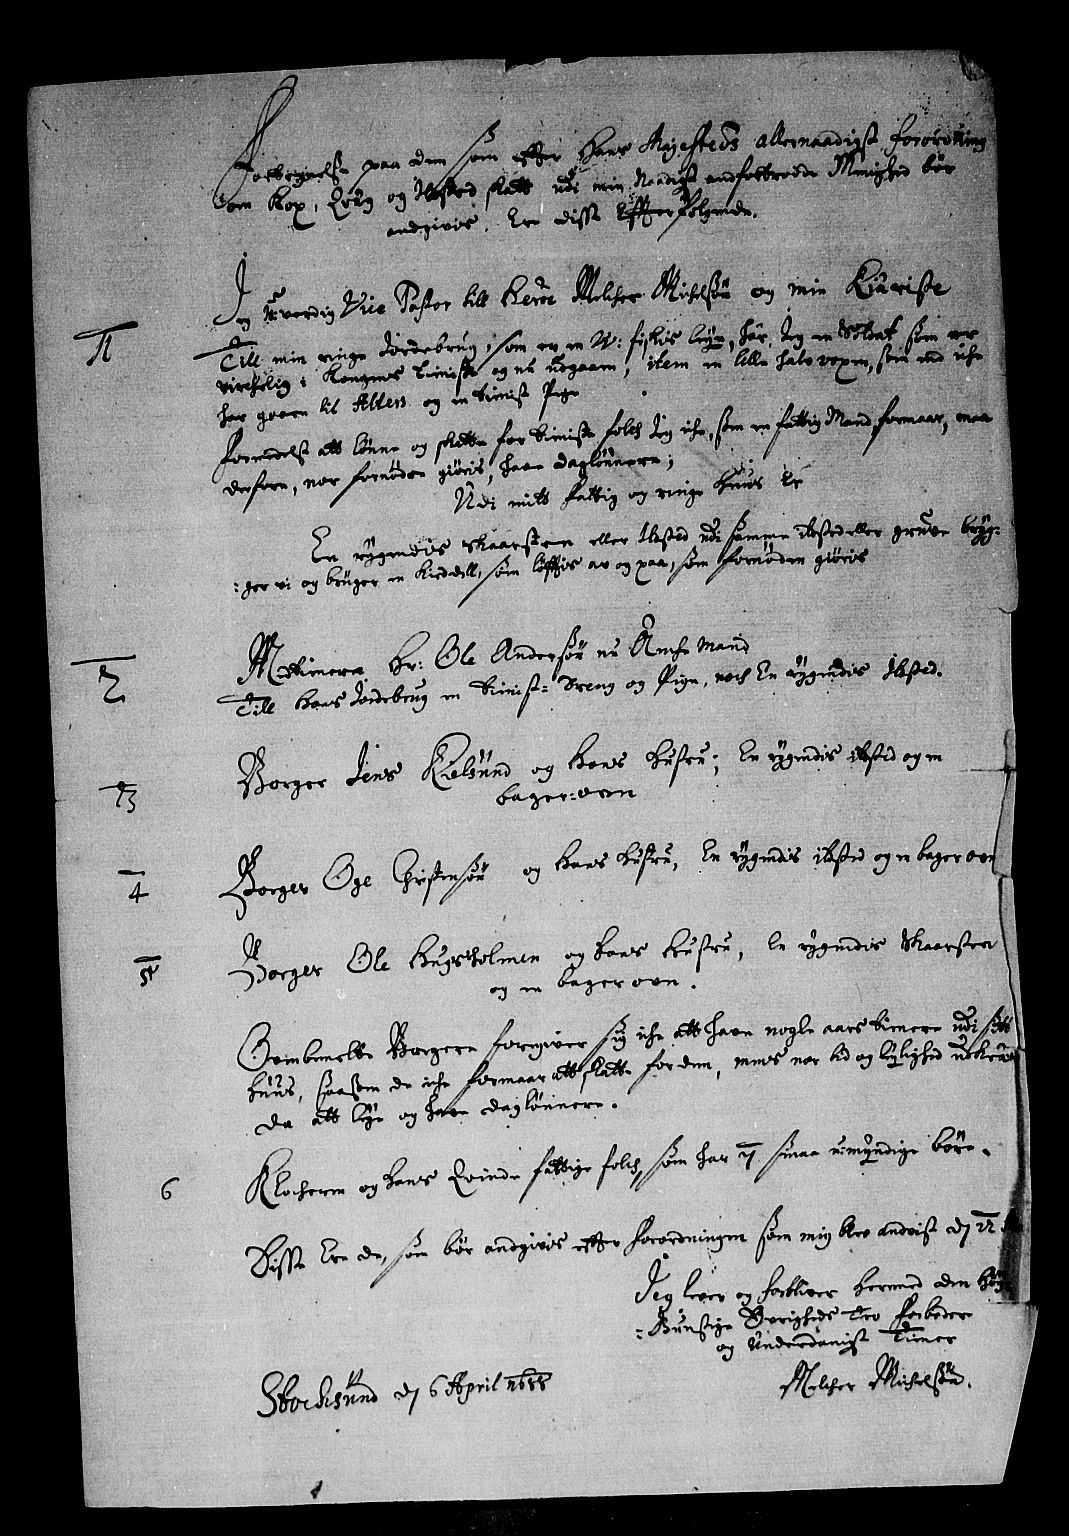 Fortegnelse paa dem som effter Hans Majesteds allernaadigst forordning
om Kop, Qvæg og Ilsted skatt udi min Naadigst andfortrodde Menighed bør
andgivis. Ere disse Effterfølgende.
Jeg U:verdig Vice Pastor till Herøe Melcher Michelsøn og min Kiæriste
1
Till min ringe Jordebrug, som er en W: fiskis leye, har Jeg en Soldat som er
virchelig i Kongens tieniste og nu udgaaen, item en lille halv voxen, som end iche
har gaaen til Alters og en tieniste Pige
Formedelst att lønne og skatte for tieniste folch Jeg iche, som en fattig Mand formaar, maa
derfore, nar fornøden giøris, have daglønnere;
Udi mitt fattig og ringe Huus Er
En rygendis skaarsten eller Ilsted udi samme ilsted eller gruve bryg-
:ger vi og bruger en Kieddell, som løfftis av og paa, som fornøden giøris
2
Medtienere Hr: Ole Andersøn nu Enche Mand
Till Hans Jordebrug en tienist: Dreng og Pige, noch En rygendis Ilsted.
3
Borger Jens Kielsund og Hans Hustru; En rygendis ilsted og en
bager:ovn
4
Borger Oge Christensøn og Hans Hustru, En rygendis ilsted og en bager ovn
5
Borger Ole Hugsholmen og hans Hustru, En rygendis Skaarsten
og en bager ovn.
Ovenbemelte Borgere foregiver sig iche att have nogle aars tienere udi sitt
huus, saasom de iche formaar att skatte for dem, mens nar tid og leylighed udkræver
da att leye og have daglønnere.
6
Klocheren og Hans Qvinde fattige folch, som har 7 smaa u:myndige børn.
Disse Ere de, som bør andgivis effter forordningen som mig blev andvist d 22
Jeg lever og forbliver hermed den Høy
:Gunstige Øvrigheds Tro forbeder
og Underdanigst Tiener
Melcher Michelsøn.
Stochsund d 6 April 1688